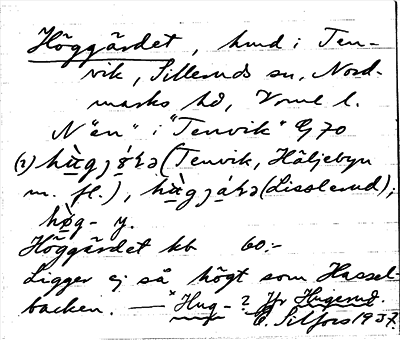 Höggärdet, hmd i Ten-
vik, Silleruds sn, Nord-
marks hd, Vrml l.
N "en" i "Tenvik" G 70
(Tenvik, Häljebyn
m. fl.), (Lisslerud);
hög- y.
Höggärdet kb 60:-
Ligger ej så högt som Hassel-
backen. — *Hug- ? Jfr Hugerud.
E. Silfors 1937.